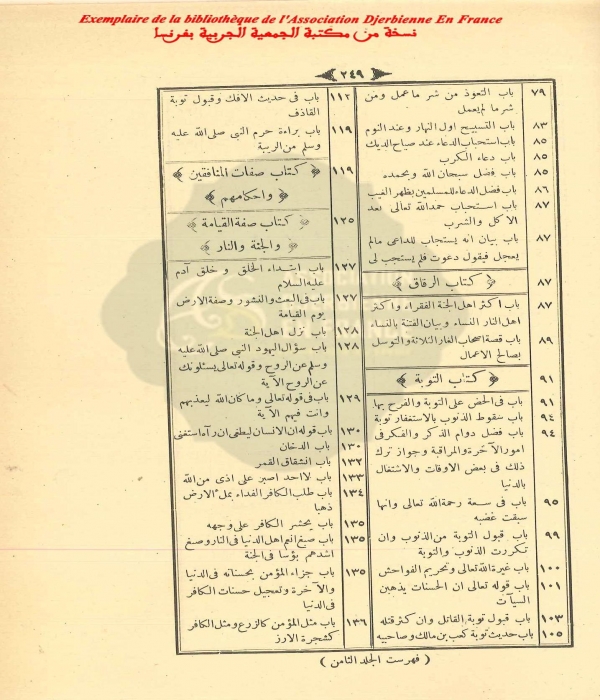 Exemplaire de la bibliothèque de l'Association Djerbienne En France
نسخة من مكتبة الجمعية الجربية بفرنسا
٢٤٩
٧٩ باب التعوذ من شر ما عمل ومن
شر ما لم يعمل
٨٣ باب التسبيح اول النهار وعند النوم
٨٥ باب استحباب الدعاء عند صياح الديك
٨٥ باب دعاء الكرب
٨٥ باب فضل سبحان الله وبحمده
٨٦ باب فضل الدعاء للمسلمين بظهر الغيب
٨٧ باب استحباب حمد الله تعالى بعد
الاكل والشرب
٨٧ باب بيان انه يستجاب للداعى مالم
يعجل فيقول دعوت فلم يستجب لى
٨٧ ﴿ كتاب الرقاق ﴾
٨٧ باب اكثر اهل الجنة الفقراء واكثر
اهل النار النساء وبيان الفتنة بالنساء
٨٩ باب قصة اصحاب الغار الثلاثة والتوسل
بصالح الاعمال
٩١ ﴿ كتاب التوبة ﴾
٩١ باب فى الحض على التوبة والفرح بها
٩٤ باب سقوط الذنوب بالاستغفار توبة
٩٤ باب فضل دوام الذكر والفكر فى
امور الآخرة والمراقبة وجواز ترك
ذلك فى بعض الاوقات والاشتغال
بالدنيا
٩٥ باب فى سعة رحمة الله تعالى وانها
سبقت غضبه
٩٩ باب قبول التوبة من الذنوب وان
تكررت الذنوب والتوبة
١٠٠ باب غيرة الله تعالى وتحريم الفواحش
١٠١ باب قوله تعالى ان الحسنات يذهبن
السيآت
١٠٣ باب قبول توبة القاتل وان كثر قتله
١٠٥ باب حديث توبة كعب بن مالك وصاحبيه
١١٢ باب فى حديث الافك وقبول توبة
القاذف
١١٩ باب براءة حرم النبى صلى الله عليه
وسلم من الريبة
١١٩ ﴿ كتاب صفات المنافقين ﴾
﴿ واحكامهم ﴾
١٢٥ ﴿ كتاب صفة القيامة ﴾
﴿ والجنة والنار ﴾
١٢٧ باب ابتداء الخلق و خلق آدم
عليه السلام
١٢٧ باب فى البعث والنشور وصفة الارض
يوم القيامة
١٢٨ باب نزل اهل الجنة
١٢٨ باب سؤال اليهود النبى صلى الله عليه
وسلم عن الروح وقوله تعالى يسئلونك
عن الروح الآية
١٢٩ باب فى قوله تعالى وما كان الله ليعذبهم
وانت فيهم الآية
١٣٠ باب قوله ان الانسان ليطغى ان رآه استغنى
١٣٠ باب الدخان
١٣٢ باب انشقاق القمر
١٣٣ باب لا احد اصبر على اذى من الله
١٣٤ باب طلب الكافر الفداء بملء الارض
ذهبا
١٣٥ باب يحشر الكافر على وجهه
١٣٥ باب صبغ انعم اهل الدنيا فى النار وصبغ
اشدهم بؤسا فى الجنة
١٣٥ باب جزاء المؤمن بحسناته فى الدنيا
والآخرة وتعجيل حسنات الكافر
فى الدنيا
١٣٦ باب مثل المؤمن كالزرع ومثل الكافر
كشجرة الارز
( فهرست الجلد الثامن )